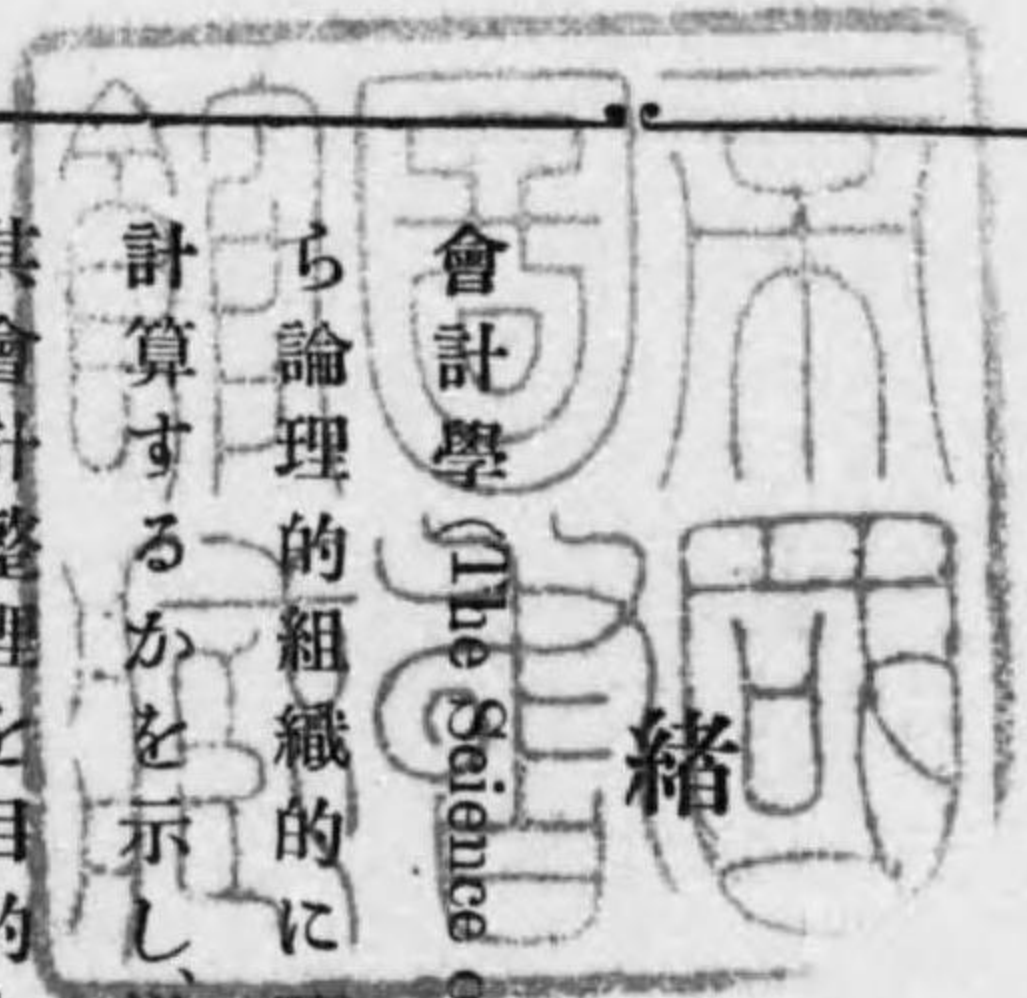 緒
會計學 (The Science
ら論理的組織的に
計算するかを示し、
其會計整理を目的
帝國
圖書
館藏